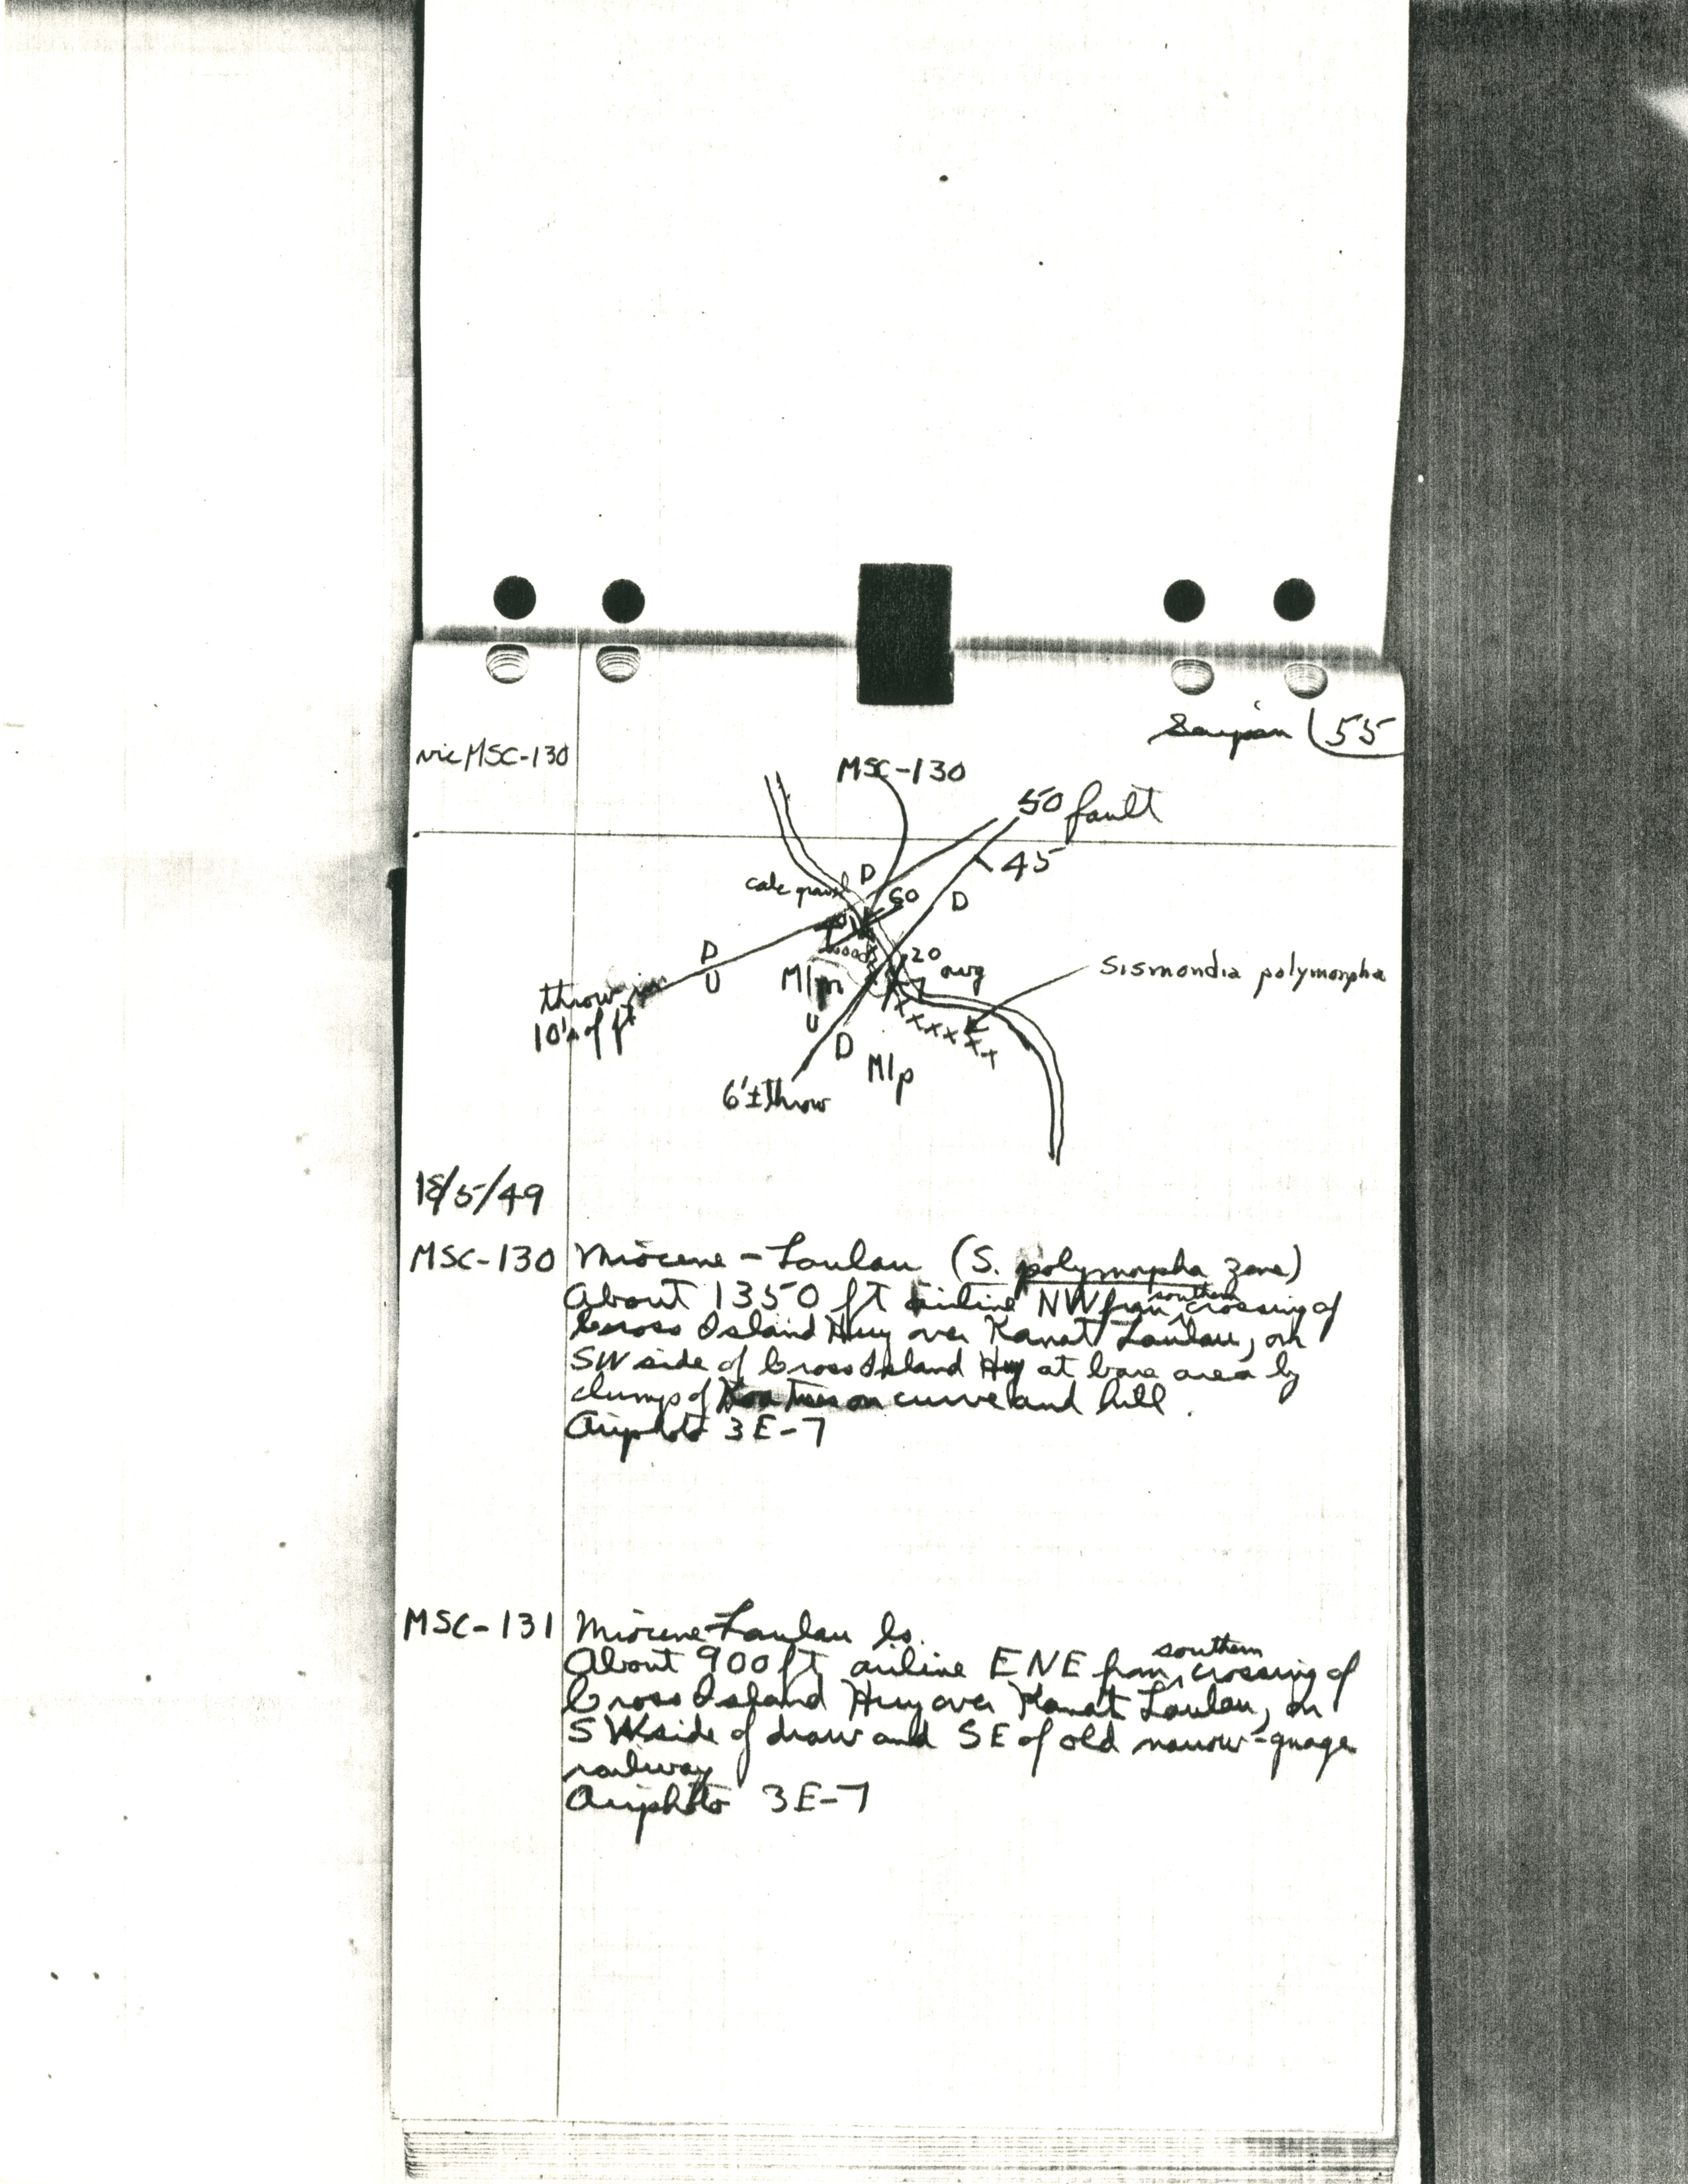 Saipan 55
vic MSC-130
MSC-130
50 fault
45
D
calc gravel
60
D
D
U
20
avg
Sismondia polymorpha
Mlm
throw in
10's of ft
U
D
Mlp
6'± throw
18/5/49
MSC-130 Miocene - Laulau (S. polymorpha zone)
About 1350 ft airline NW from southern crossing of
Cross Island Hwy over Kanat Laulau, on
SW side of Cross Island Hwy at bare area by
clump of trees on curve and hill.
Airphoto 3E-7
MSC-131 Miocene-Laulau ls.
About 900 ft airline ENE from southern crossing of
Cross Island Hwy over Kanat Laulau, on
SW side of draw and SE of old narrow-guage
railway
Airphoto 3E-7